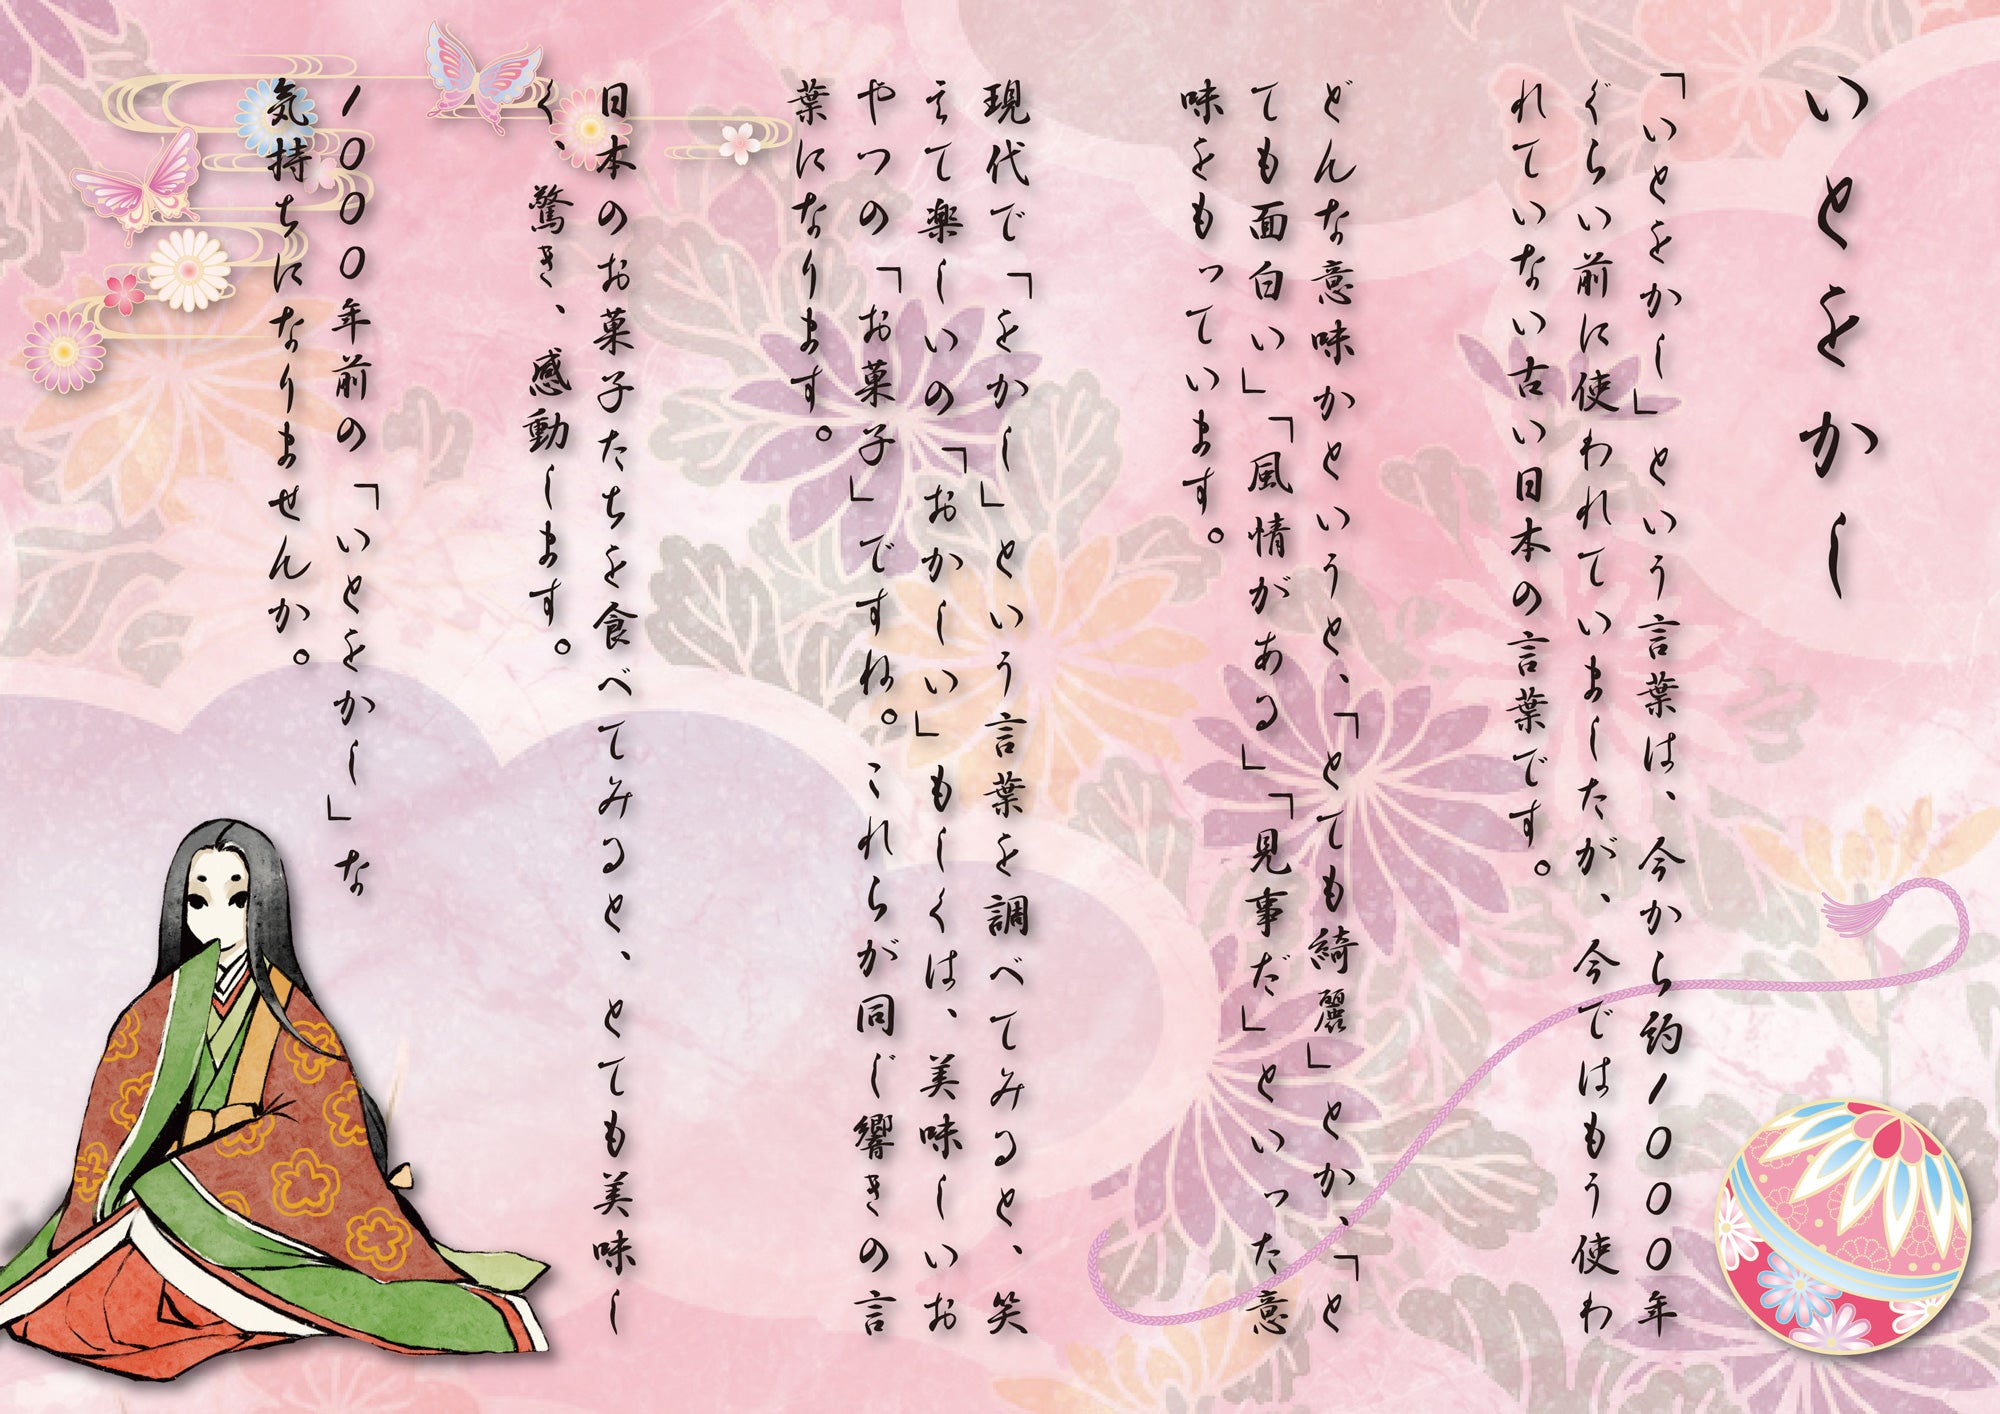 いとをかし
「いとをかし」という言葉は、今から約1000年
ぐらい前に使われていましたが、今ではもう使わ
れていない古い日本の言葉です。
どんな意味かというと、「とても綺麗」とか、「と
ても面白い」「風情がある」「見事だ」といった意
味をもっています。
現代で「をかし」という言葉を調べてみると、笑
えて楽しいの「おかしい」もしくは、美味しいお
やつの「お菓子」ですね。これらが同じ響きの言
葉になります。
日本のお菓子たちを食べてみると、とても美味し
く、驚き、感動します。
1000年前の「いとをかし」な
気持ちになりませんか。